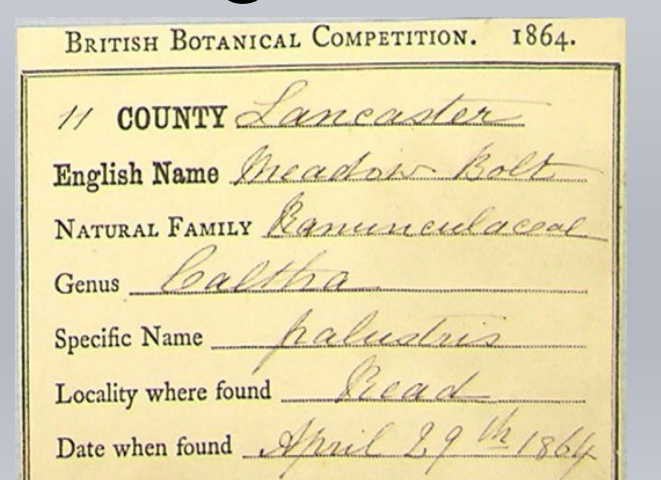 BRITISH BOTANICAL COMPETITION. 1864.
11 COUNTY Lancaster
English Name Meadow Bolt
NATURAL FAMILY Ranunculaceae
Genus Caltha
Specific Name palustris
Locality where found Read
Date when found April 29th 1864